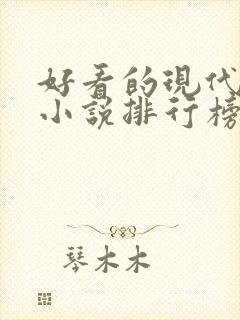 好看的现代
小说排行榜
琴木木